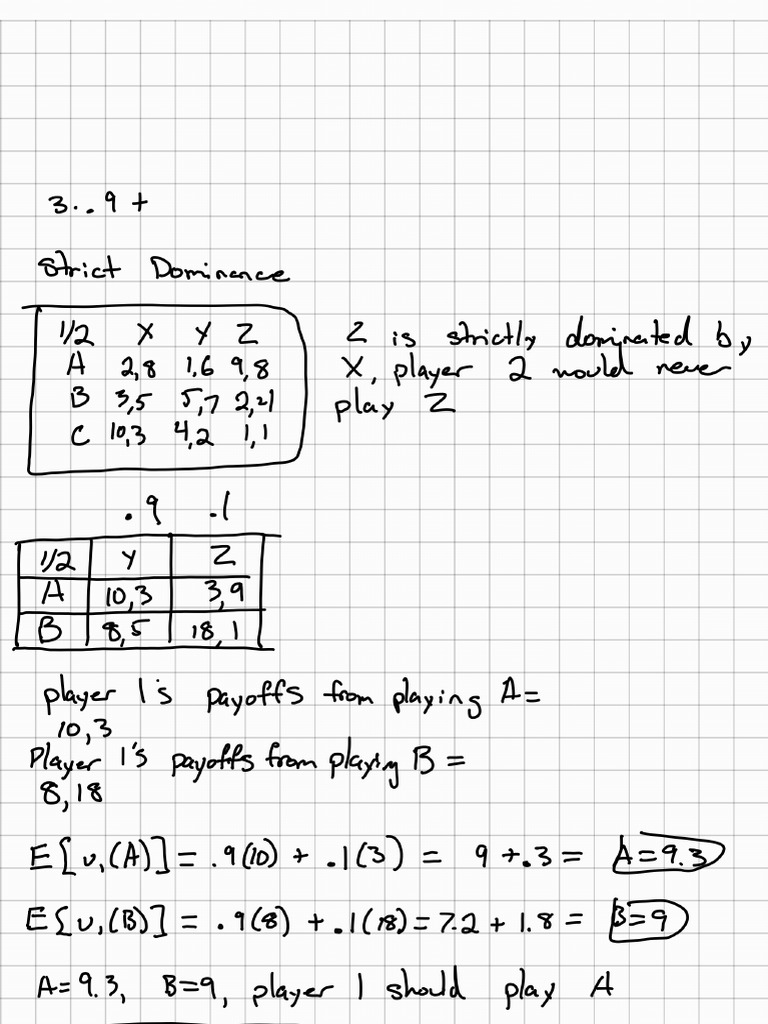 3..9+
Strict Dominance
1/2 X Y Z
A 2,8 1,6 9,8
B 3,5 5,7 2,-1
C 10,3 4,2 1,1
Z is strictly dominated by
X, player 2 would never
play Z
.9 .1
1/2 Y Z
A 10,3 3,9
B 8,5 18,1
player 1's payoffs from playing A=
10,3
Player 1's payoffs from playing B=
8,18
E[u,(A)] = .9(10) + .1(3) = 9+.3 = A=9.3
E[u,(B)] = .9(8) + .1(18) = 7.2 + 1.8 = B=9
A=9.3, B=9, player 1 should play A